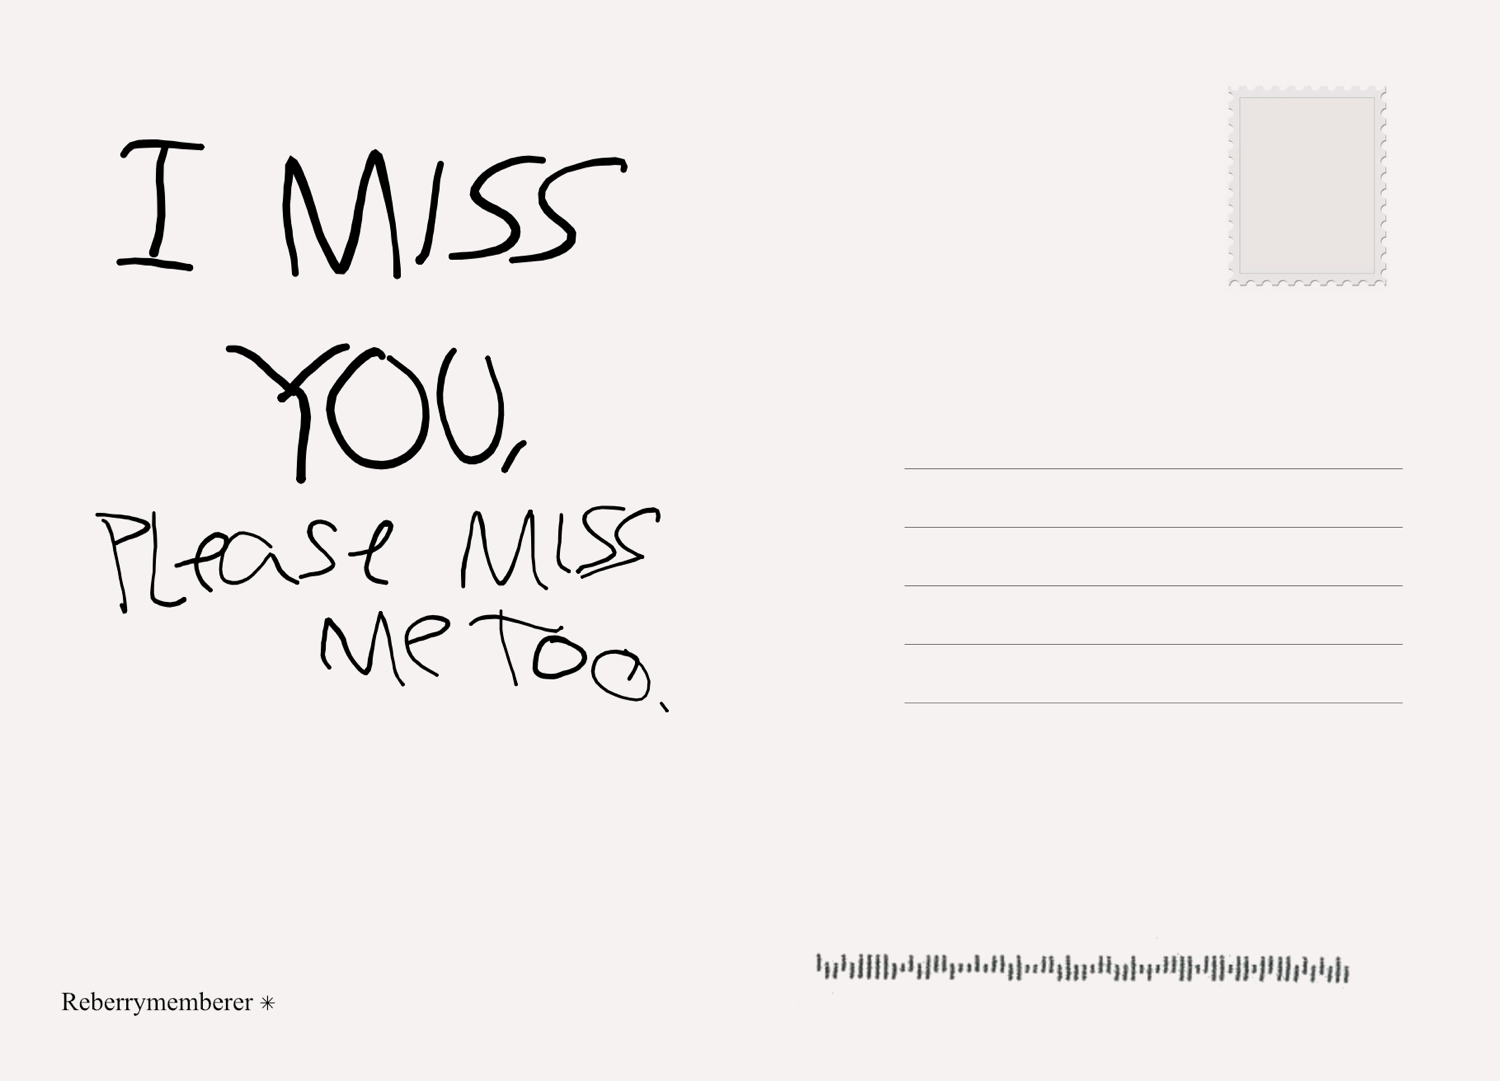 I MISS
YOU,
PLease MISS
Me Too.
Reberrymemberer ✳